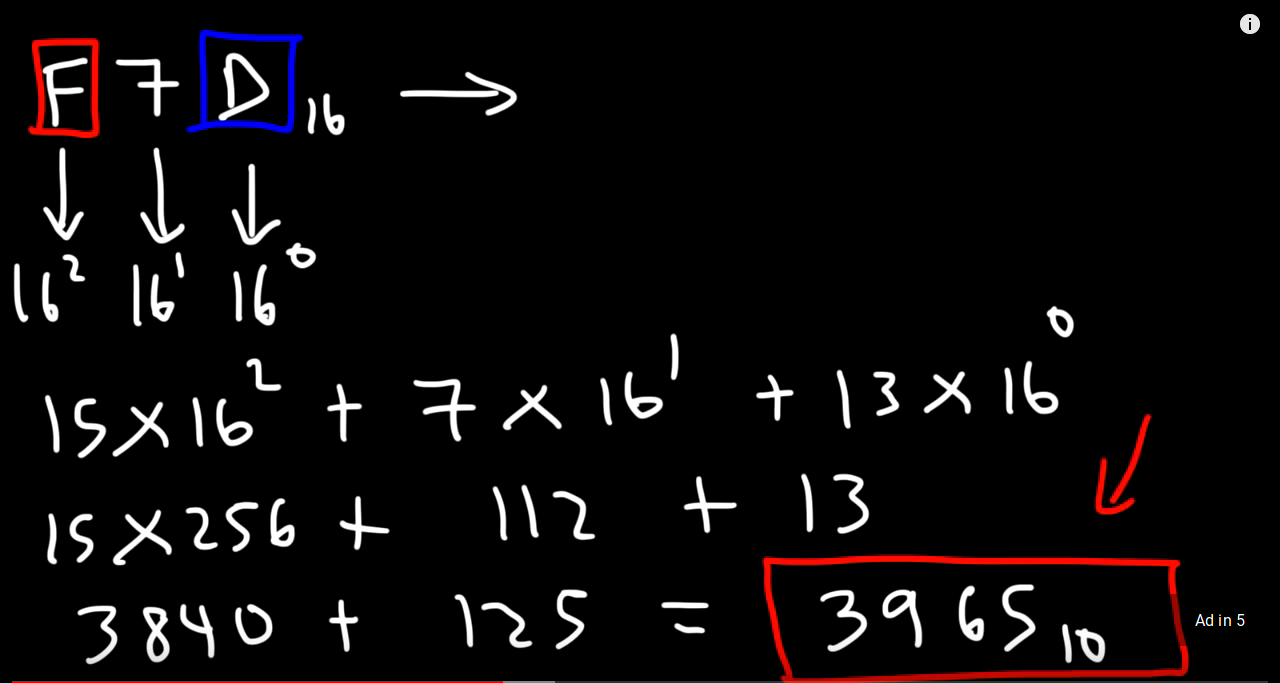 F 7 D₁₆ →
16² 16¹ 16⁰
15 × 16² + 7 × 16¹ + 13 × 16⁰
15 × 256 + 112 + 13
3840 + 125 = 3965₁₀
Ad in 5